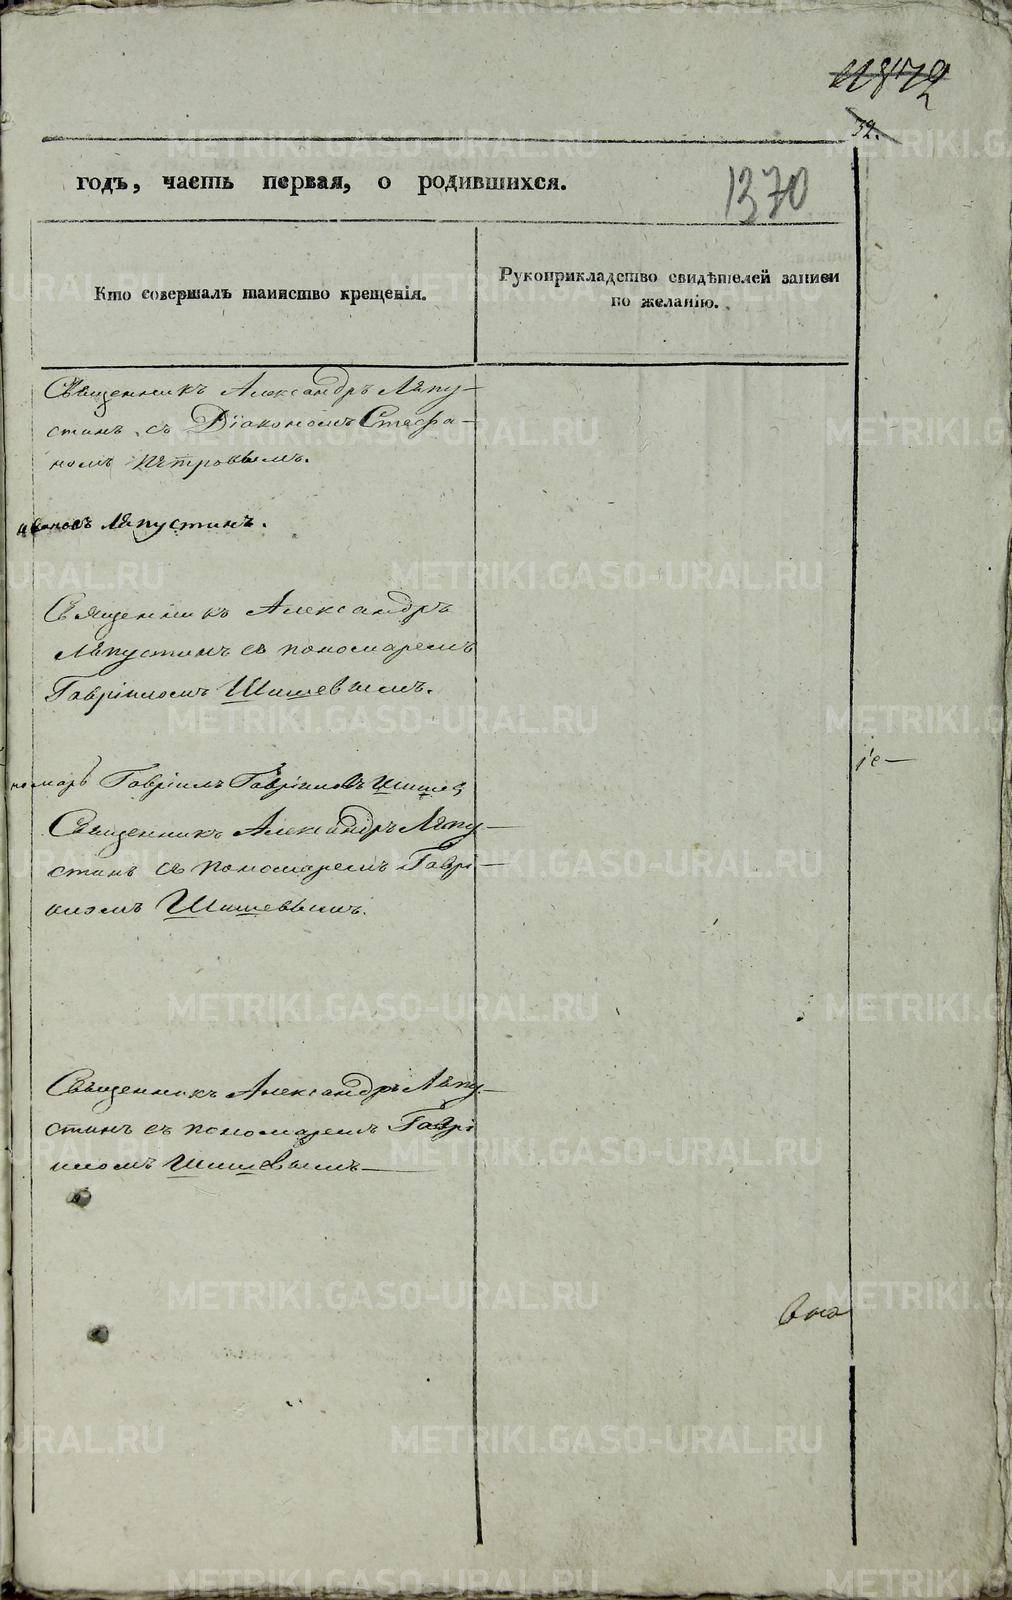 32.
годъ, часть первая, о родившихся.
1370
Кто совершалъ таинство крещенія.
Рукоприкладство свидѣтелей записи
по желанію.
Священникъ Александръ Ляпу-
стинъ съ Діакономъ Стефа-
номъ Петровымъ.
Ляпустинъ.
Священникъ Александръ
Ляпустинъ съ пономаремъ
Гавріиломъ Шишевымъ.
номарь Гавріилъ Гавріиловъ Шишев
Священникъ Александръ Ляпу-
стинъ съ пономаремъ Гаврі-
иломъ Шишевымъ.
Священникъ Александръ Ляпу-
стинъ съ пономаремъ Гаврі
иломъ Шишевымъ
METRIKI.GASO-URAL.RU